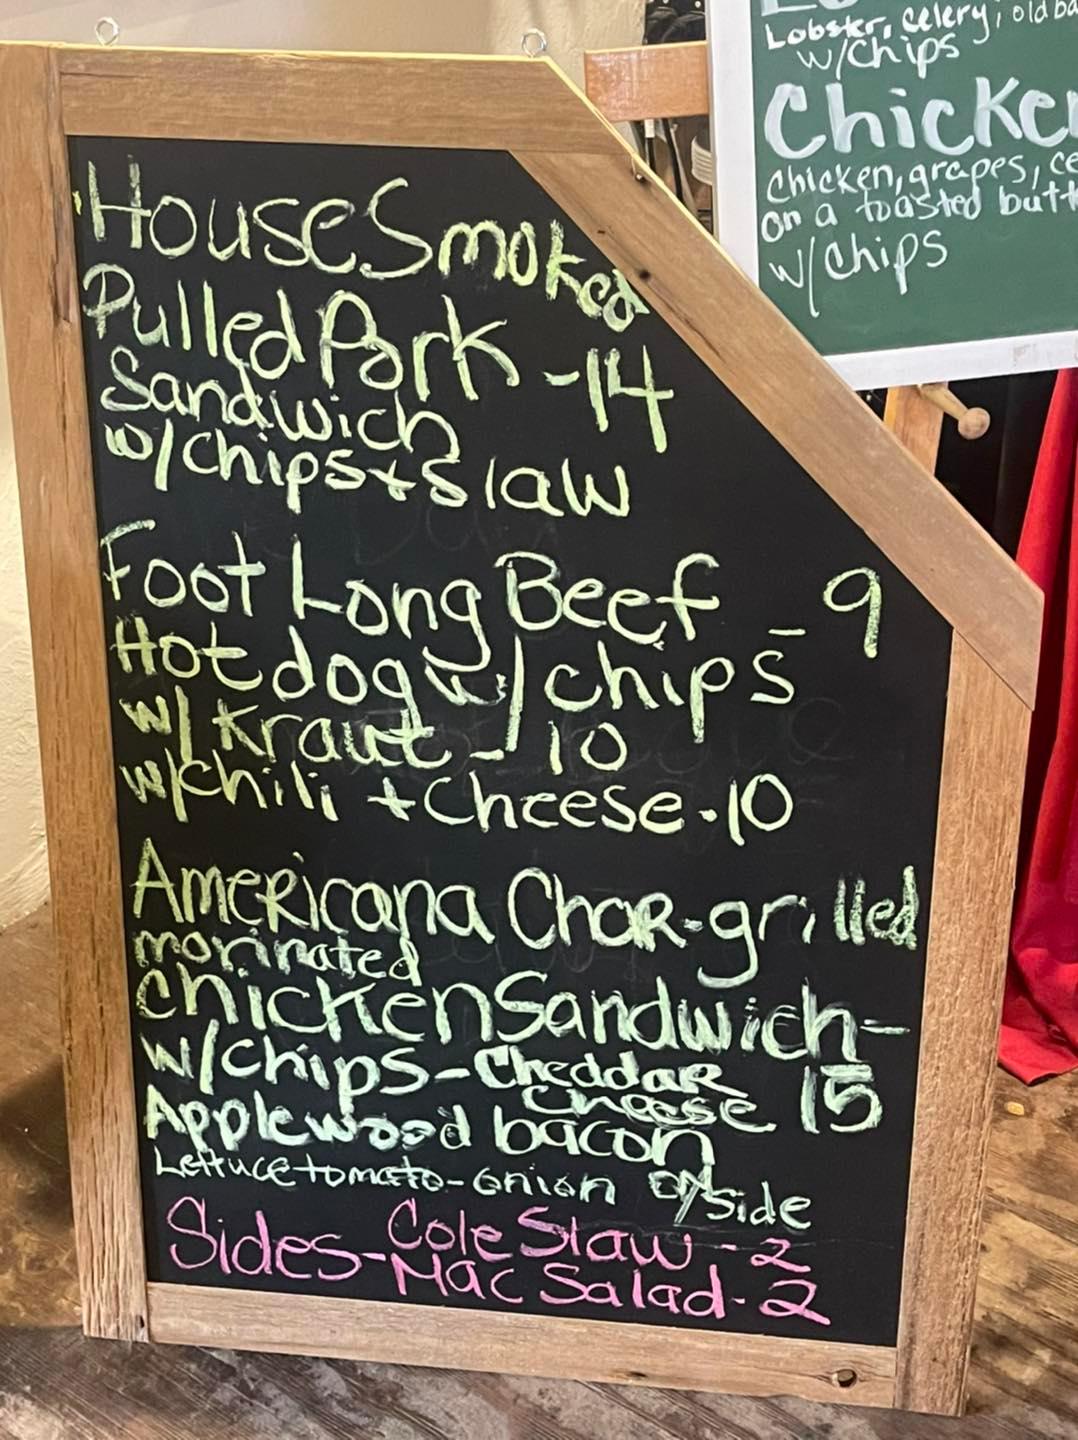 House Smoked
Pulled Pork - 14
Sandwich
w/chips + Slaw
Foot Long Beef - 9
Hot dog w/chips
w/ Kraut - 10
w/chili + Cheese - 10
Americana Char-grilled
marinated
Chicken Sandwich -
w/chips - Cheddar
cheese 15
Applewood bacon
Lettuce tomato - onion o/side
Sides - Cole Slaw - 2
Mac Salad - 2
Lobster, celery, old ba
w/chips
Chicke
chicken, grapes, ce
on a toasted butt
w/chips